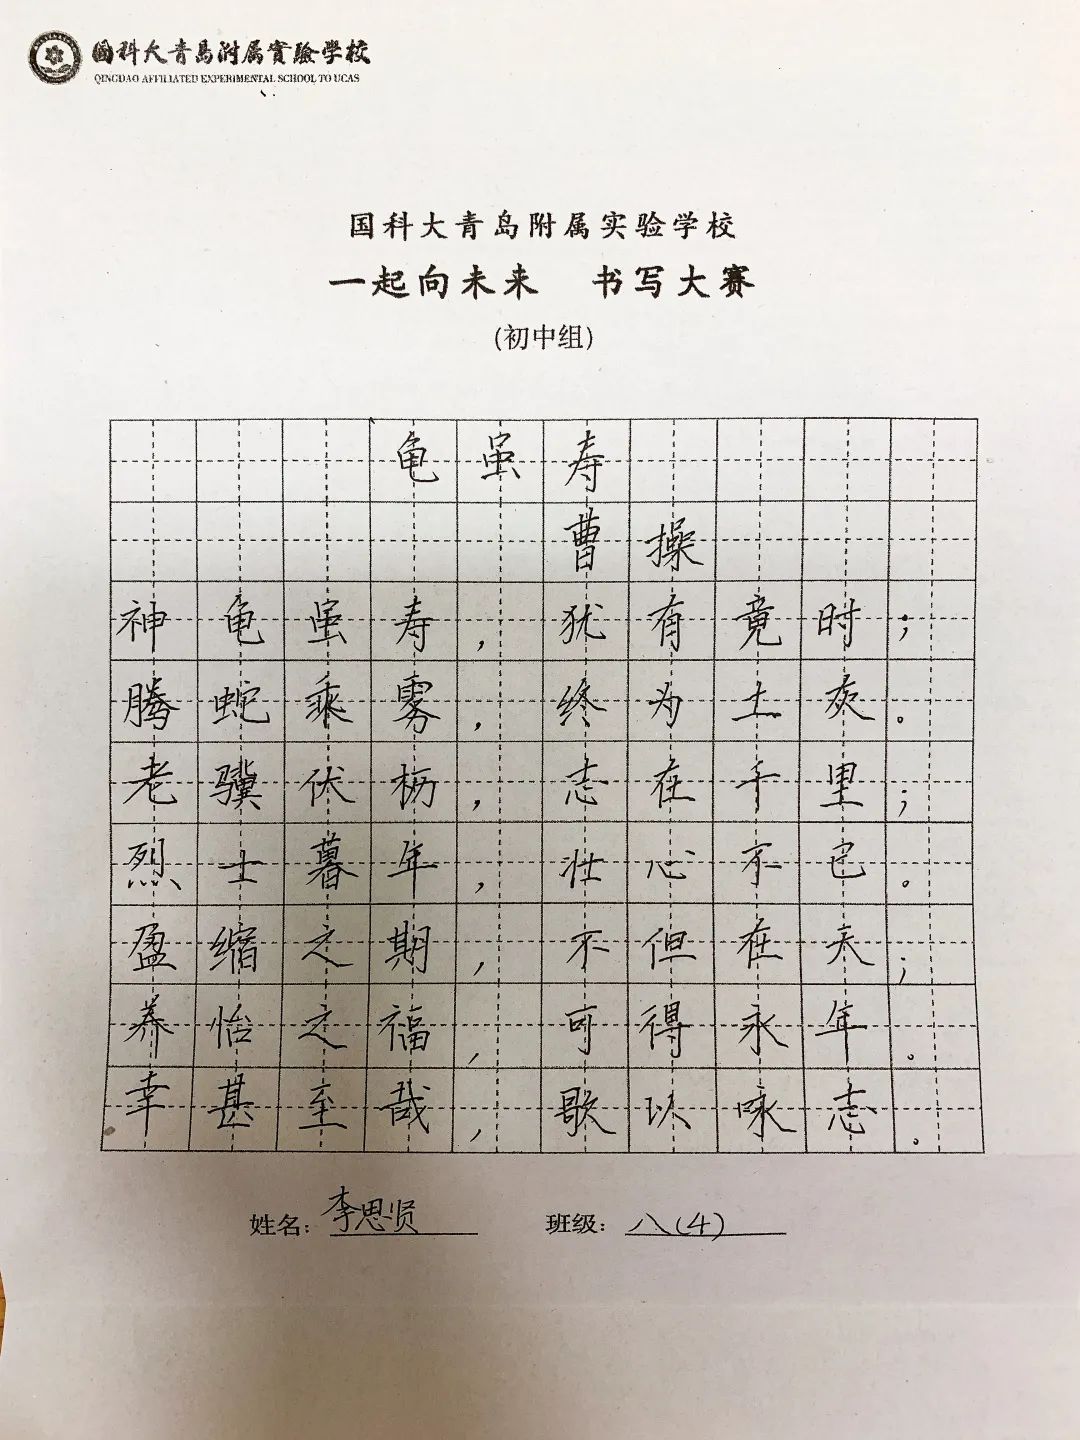 国科大青岛附属實驗学校
QINGDAO AFFILIATED EXPERIMENTAL SCHOOL TO UCAS
国科大青岛附属实验学校
一起向未来 书写大赛
(初中组)
龟虽寿
曹操
神龟虽寿，犹有竟时；
腾蛇乘雾，终为土灰。
老骥伏枥，志在千里；
烈士暮年，壮心不已。
盈缩之期，不但在天；
养怡之福，可得永年。
幸甚至哉，歌以咏志。
姓名：李思贤 班级：八(4)